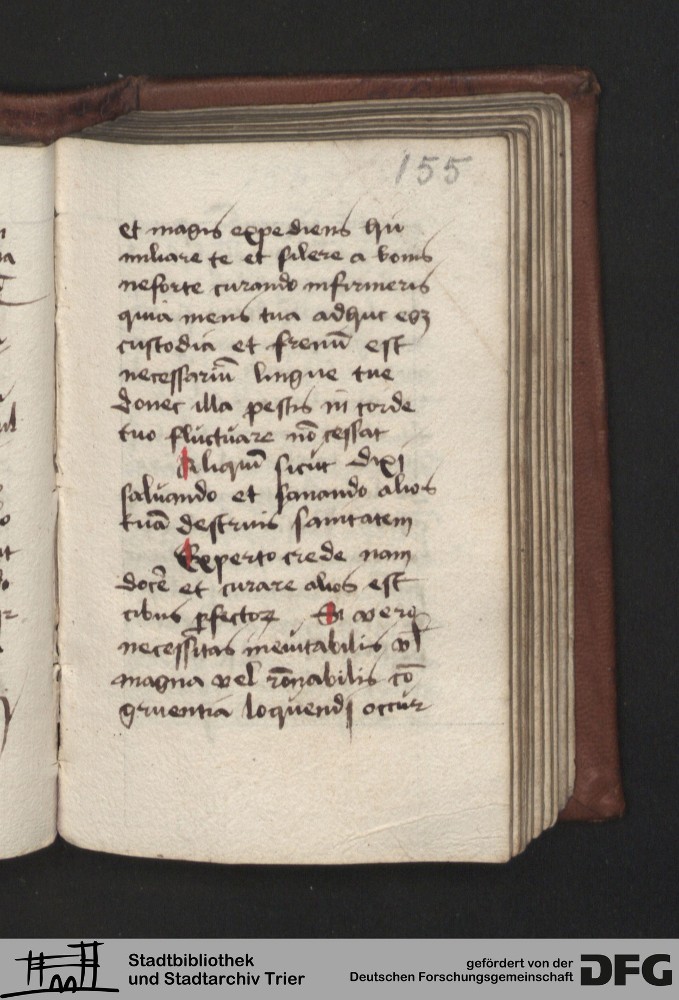 155
et magis expediens hu
miliare te et silere a bonis
neforte curando infirmeris
quia mens tua adhuc eg&
custodia et frenū est
necessariū lingue tue
donec illa pestis in corde
tuo fluctuare nō cessat
Aliquin̄ sicut dixi
saluando et sanando alios
tuā destruis sanitatem
Experto crede nam
docē et curare alios est
cibus ꝑfectoꝝ Si vero
necessitas ineuitabilis vl̄
magna vel rōnabilis cō
gruentia loquendi occur
Stadtbibliothek
und Stadtarchiv Trier
gefördert von der
Deutschen Forschungsgemeinschaft
DFG